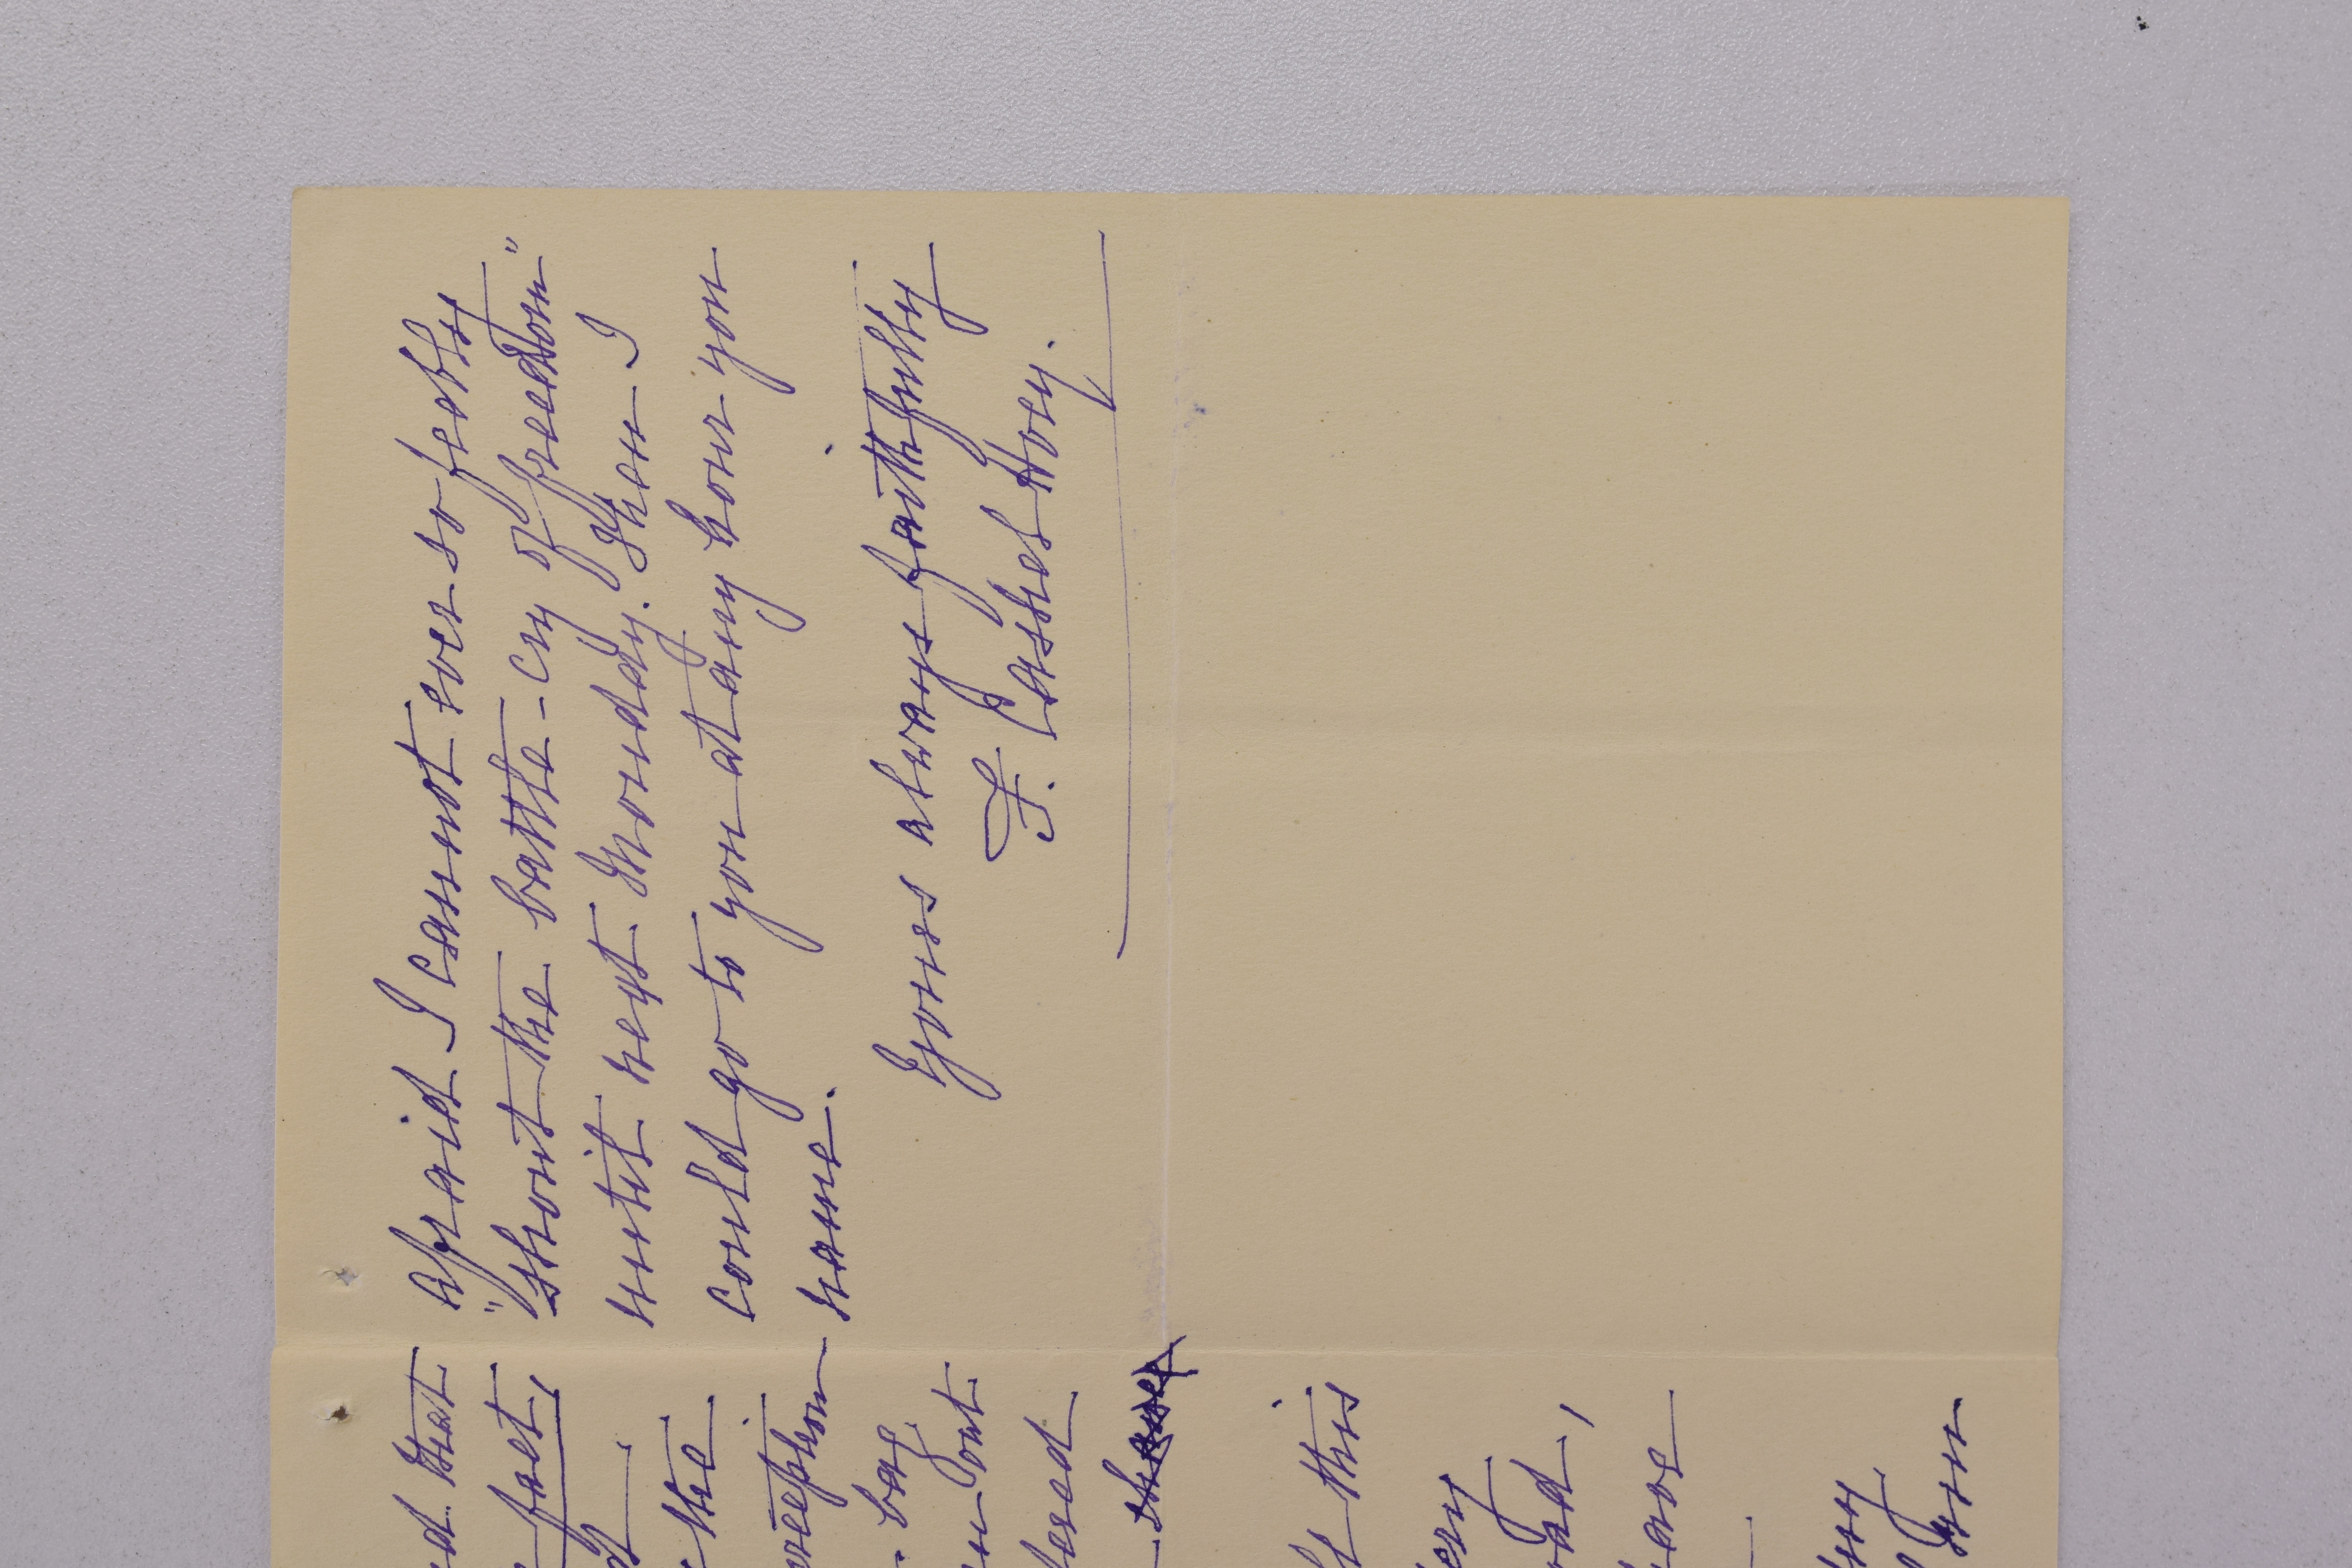 afraid I cannot ever so feebly
"shout the battle-cry of freedom"
until next Monday. Then I
could go to you at any hour you
name.
Yours always faithfully
F. Cashel Hoey.
that
fact,
the
bag
out
this